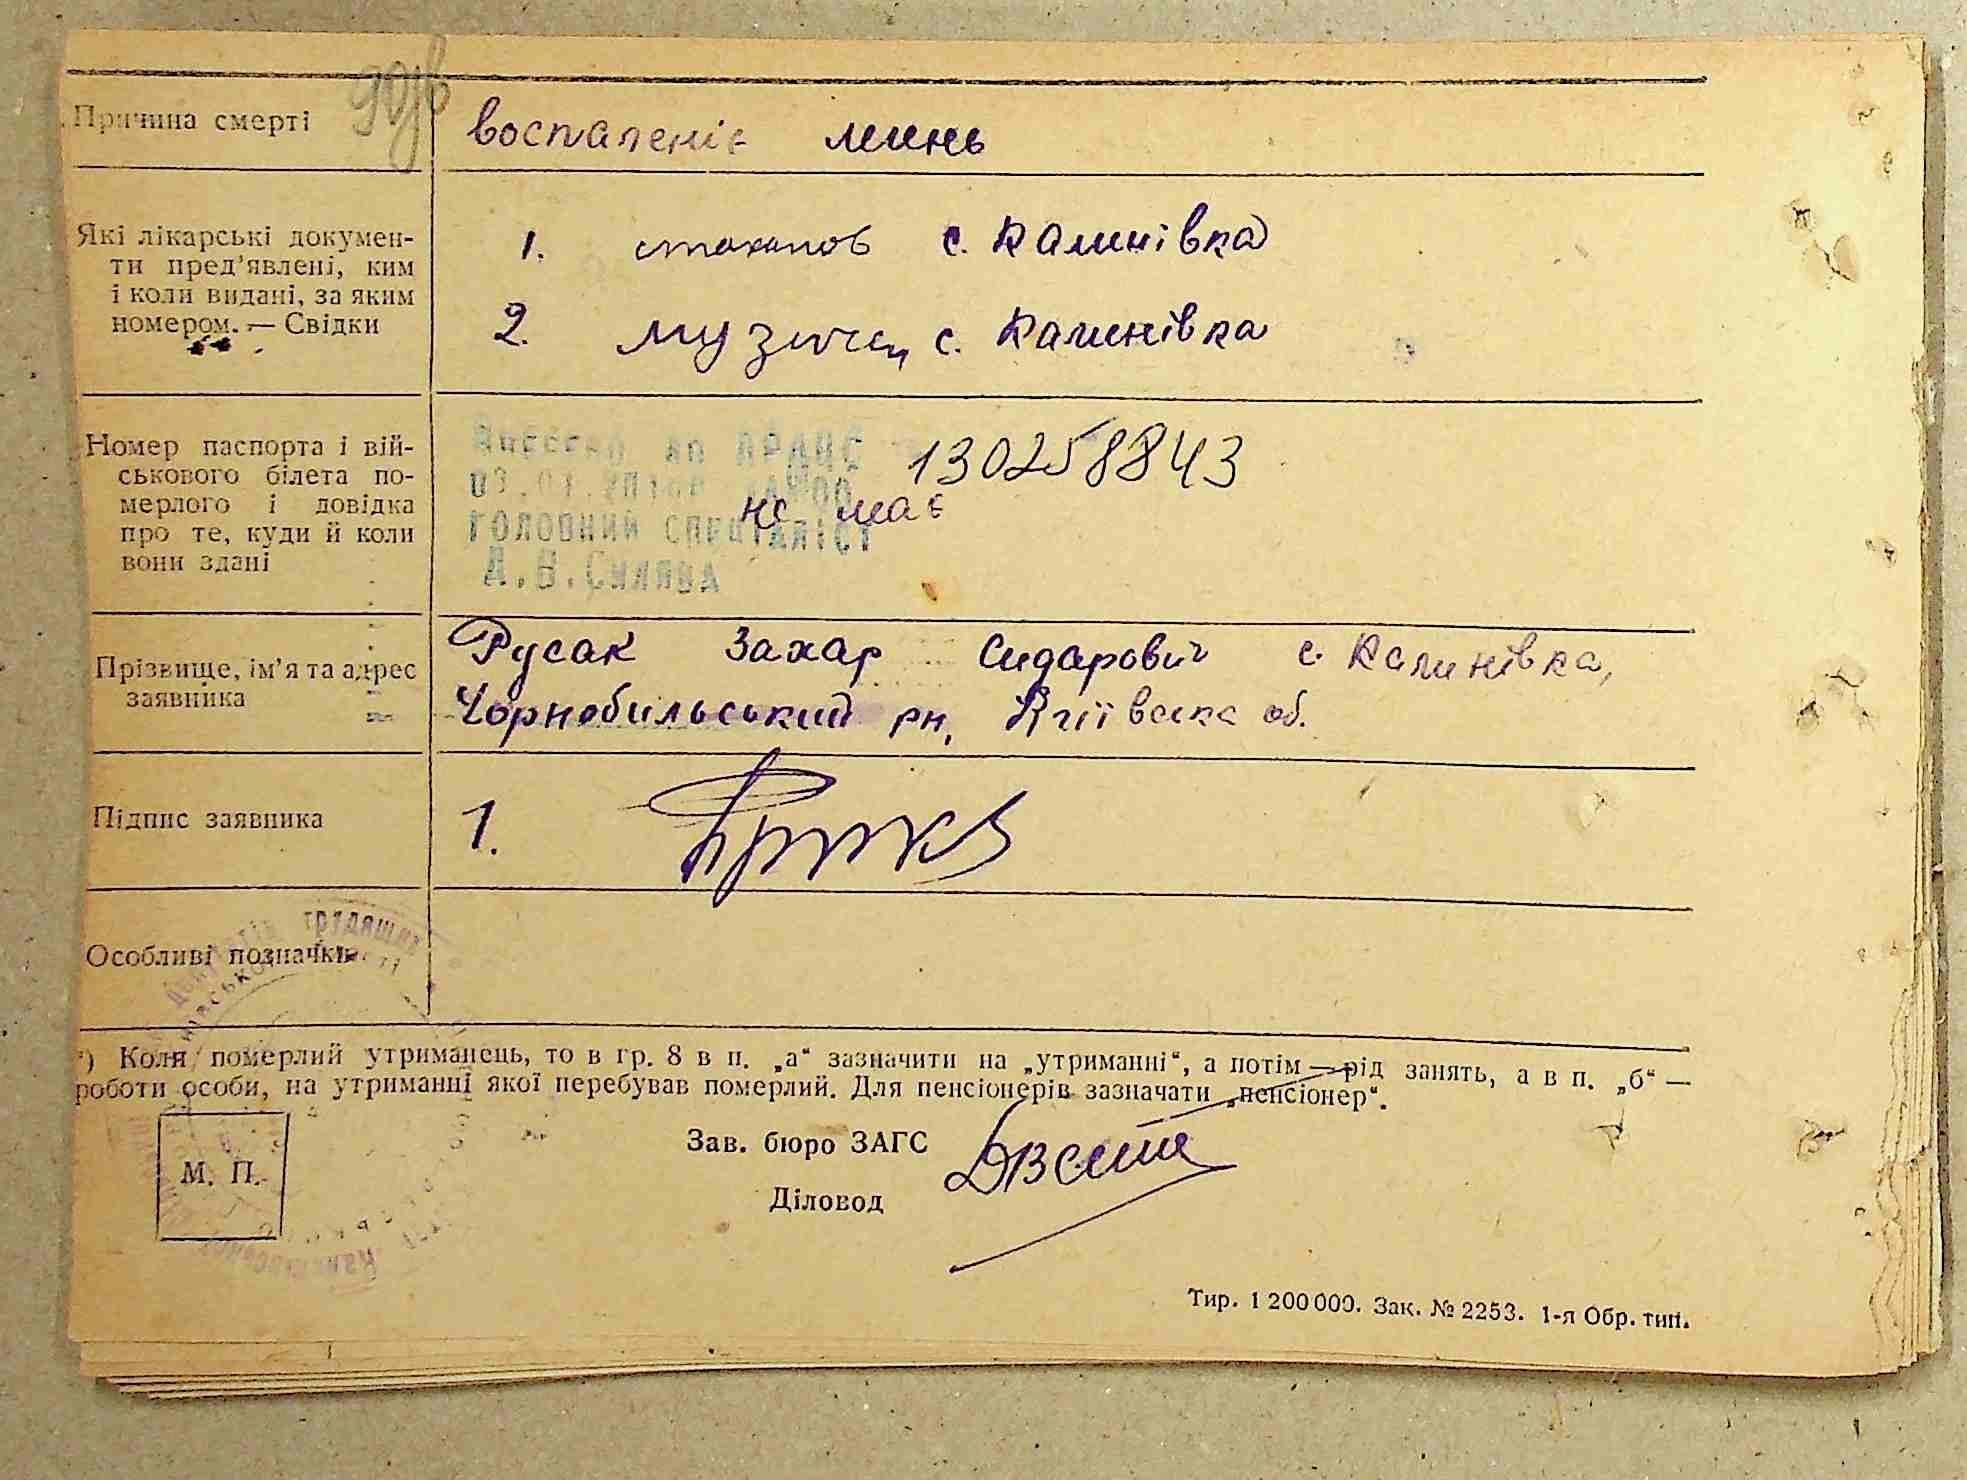 Причина смерті
воспаленіє
Які лікарські докумен-
ти пред'явлені, ким
і коли видані, за яким
номером. — Свідки
1. с. Калинівка
2. с. Калинівка
Номер паспорта і вій-
ськового білета по-
мерлого і довідка
про те, куди й коли
вони здані
130258843
не має
ГОЛОВНИЙ СПЕЦІАЛІСТ
Прізвище, ім'я та адрес
заявника
Русак Захар Сидарович с. Калинівка,
Чорнобильський рн,
об.
Підпис заявника
1.
Особливі позначки
*) Коли померлий утриманець, то в гр. 8 в п. „а“ зазначити на „утриманні“, а потім — рід занять, а в п. „б“ —
роботи особи, на утриманні якої перебував померлий. Для пенсіонерів зазначати „пенсіонер“.
Зав. бюро ЗАГС
М. П.
Діловод
Тир. 1 200 000. Зак. № 2253. 1-я Обр. тип.